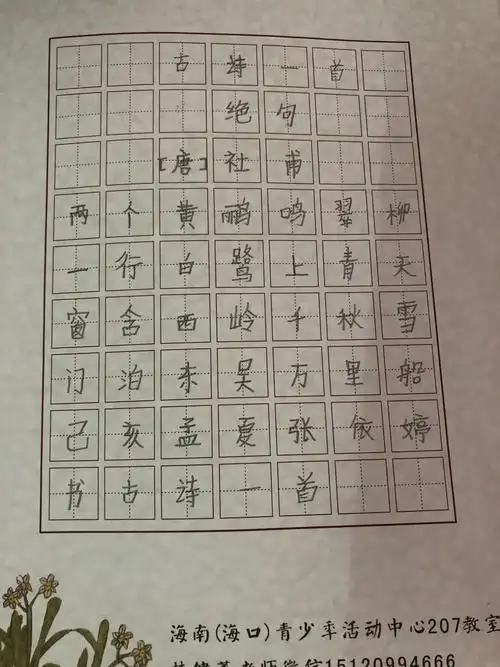 古诗一首
绝句
[唐]社甫
两个黄鹂鸣翠柳
一行白鹭上青天
窗含西岭千秋雪
门泊东吴万里船
己亥孟夏张依婷
书古诗一首
海南(海口)青少年活动中心207教室
老师微信15120994666